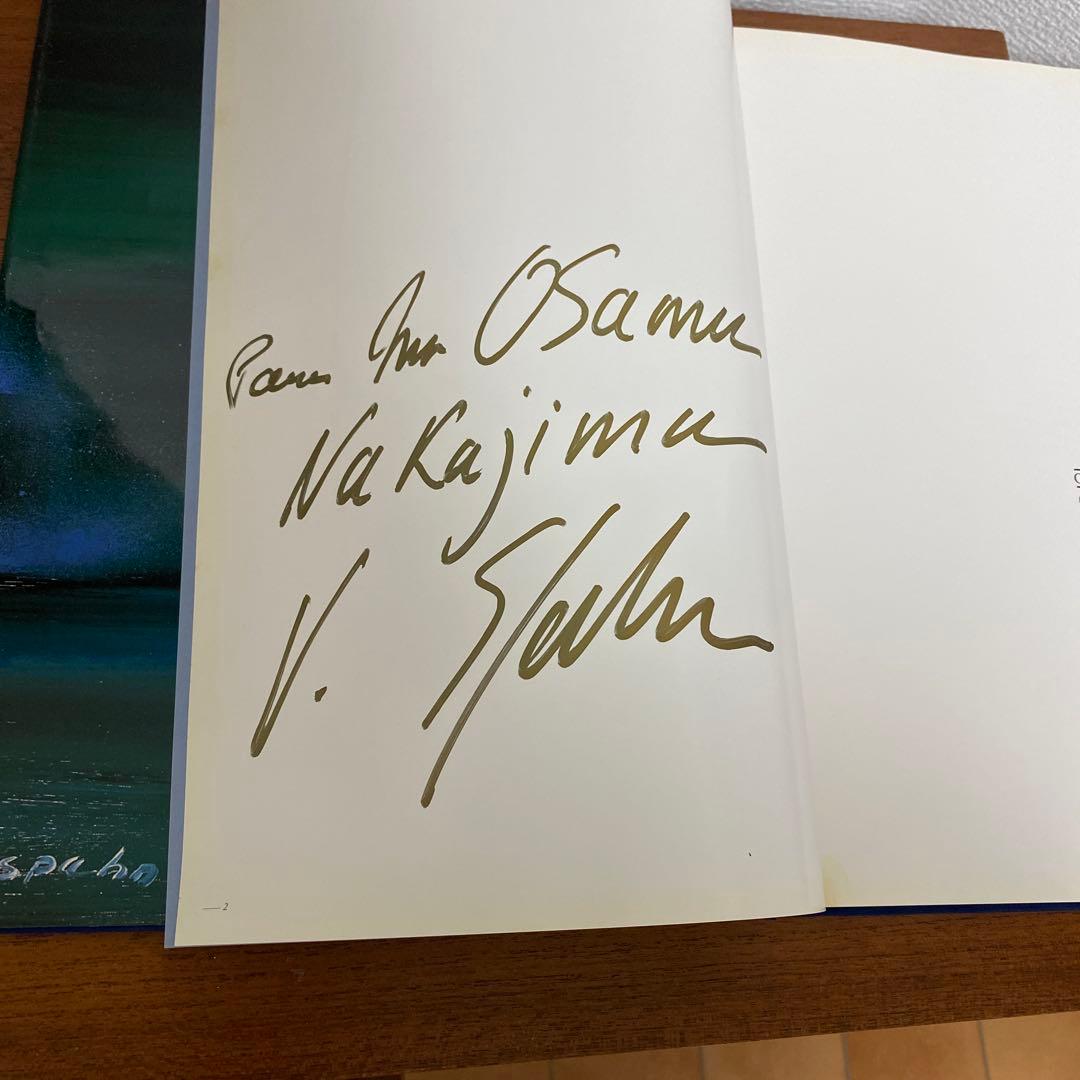 Pour Mr Osamu
Nakajima
V. Spahn
spahn
2